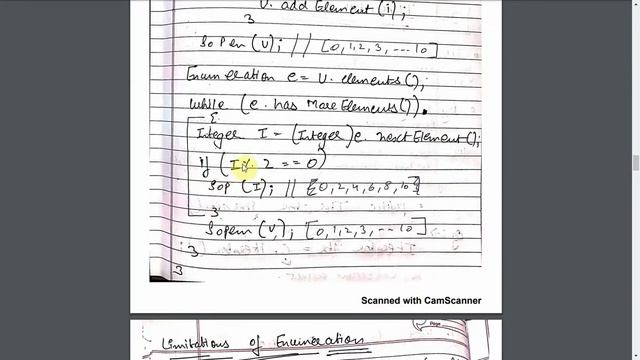 v. addElement (i);
}
Sopln (v); // [0,1,2,3, ---10]
Enumeration e = v. elements();
while (e. has MoreElements()).
{
Integer I = (Integer) e. nextElement();
if (I % 2 == 0)
Sop (I); // [0, 2, 4, 6, 8, 10]
}
Sopln (v); [0,1,2,3, ---10]
}
}
Scanned with CamScanner
Page
Limitations of Enumeration